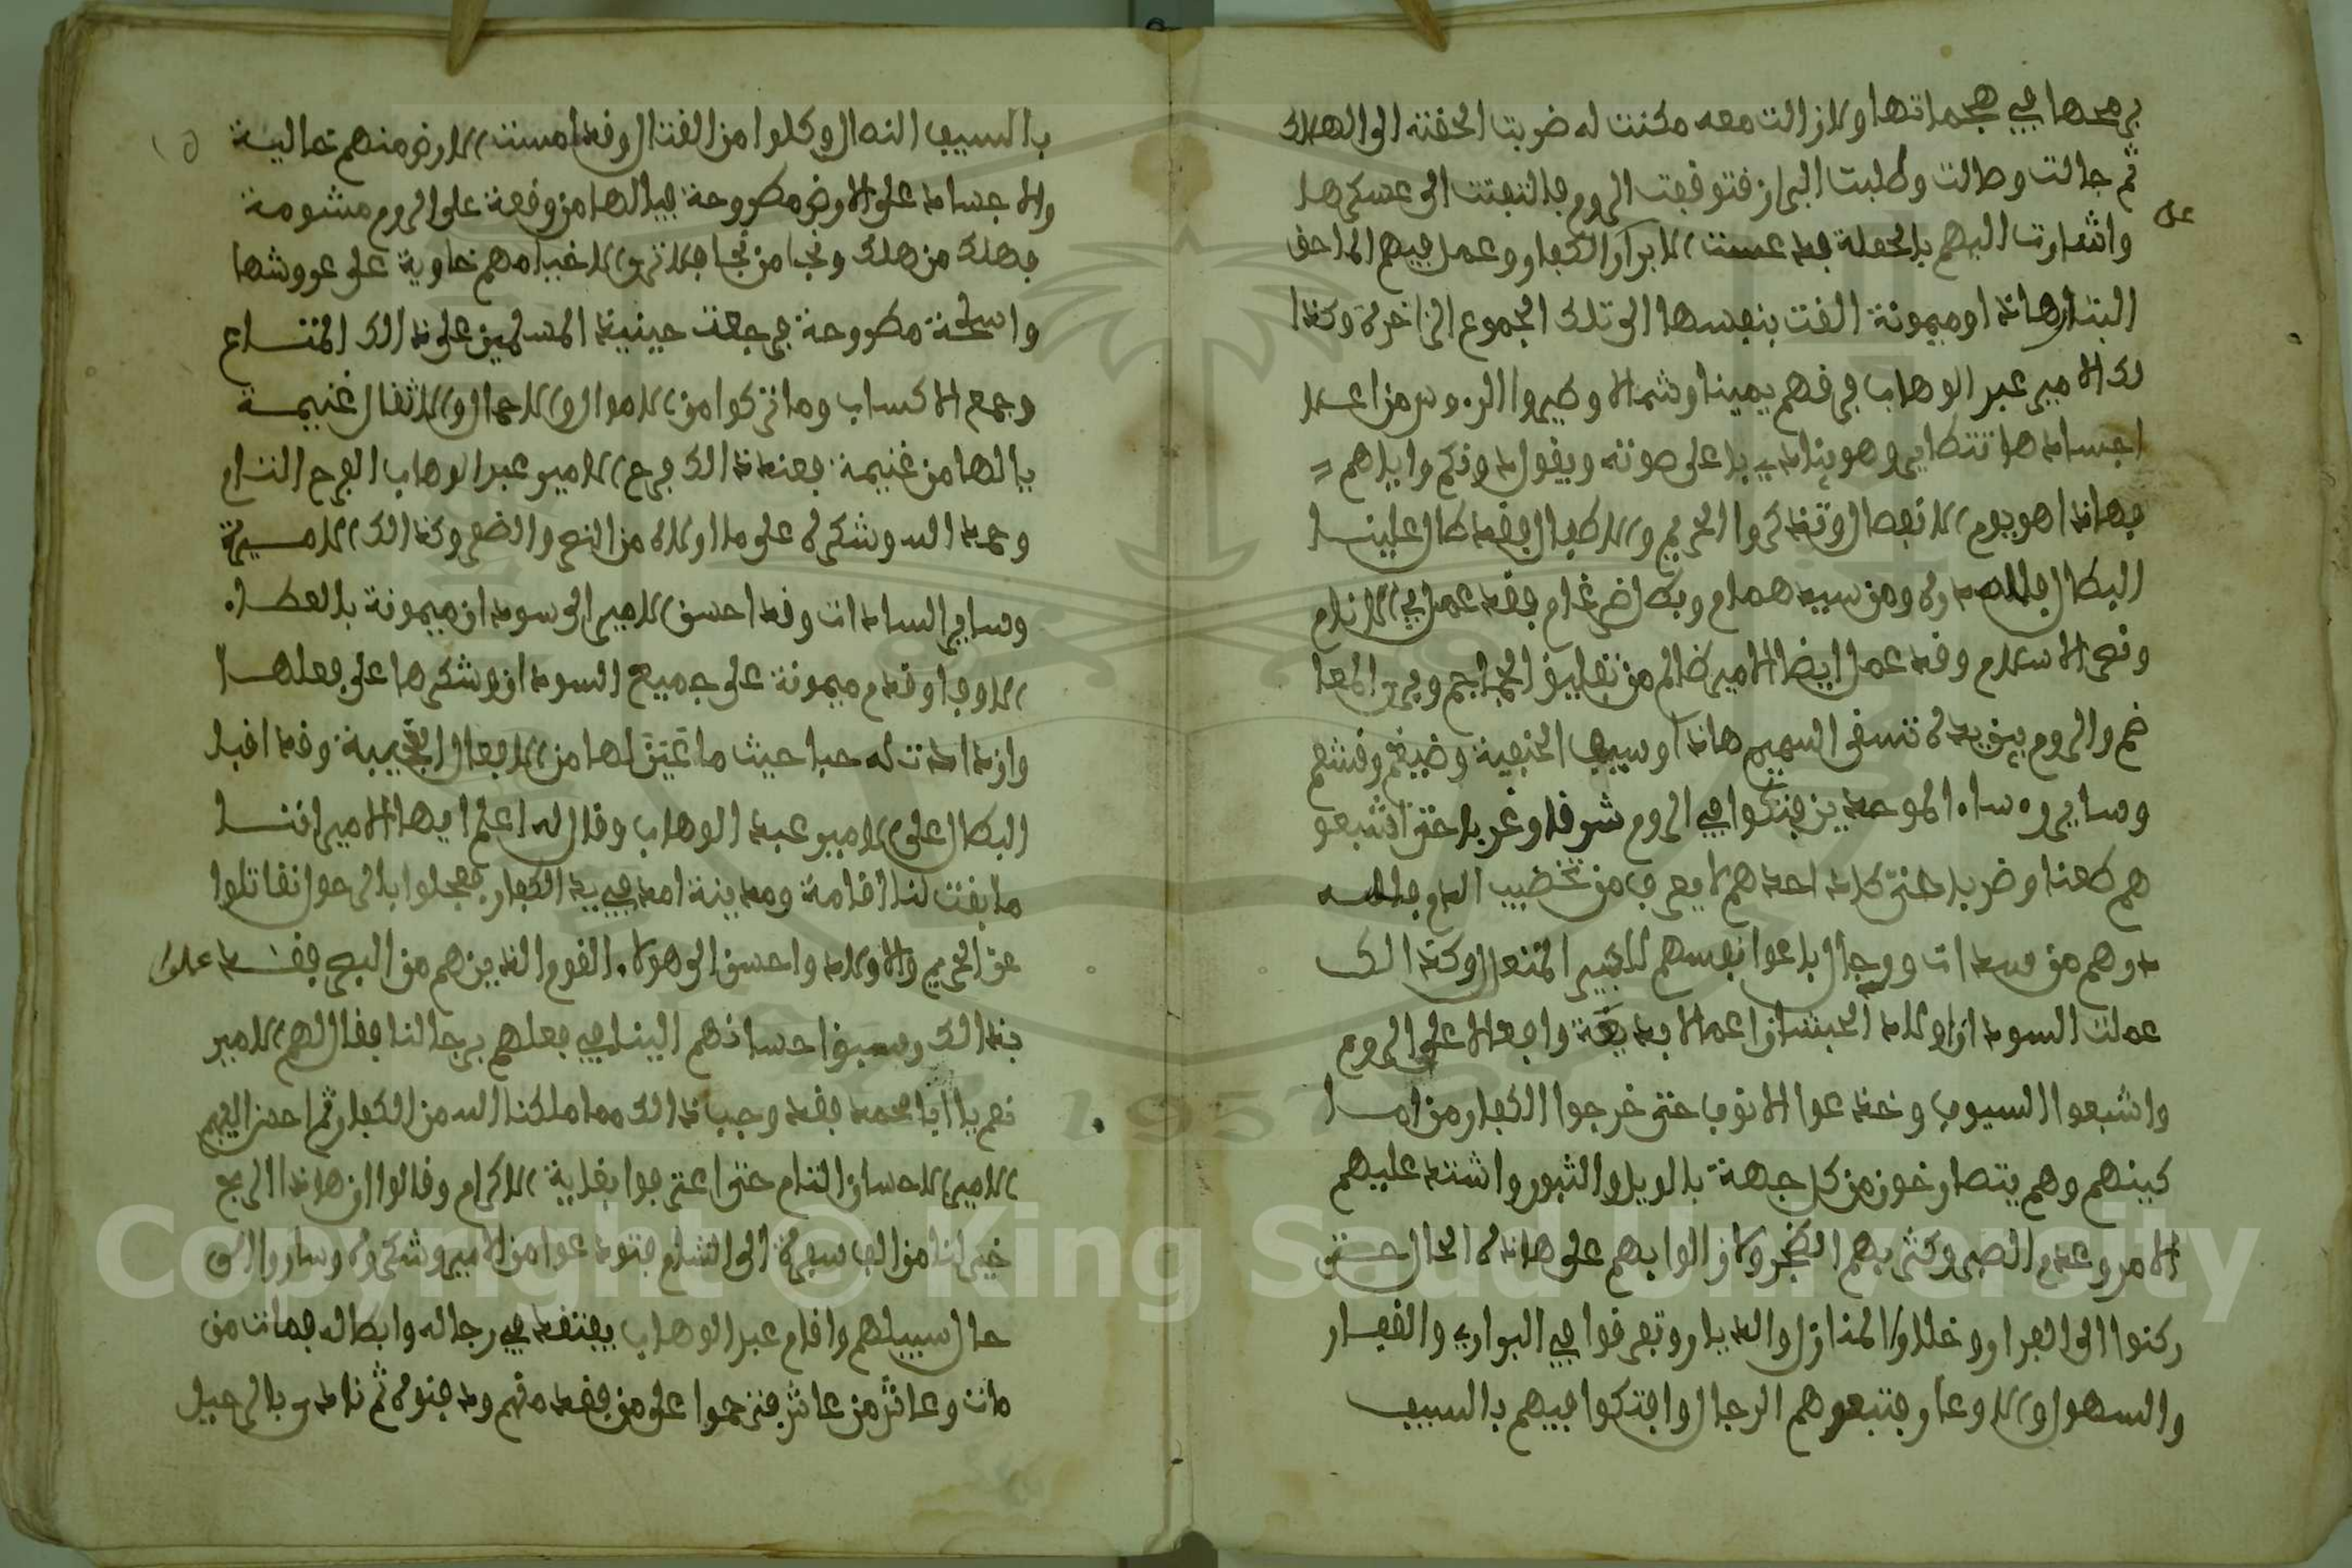 برمحها في هجماتها ولازالت معه مكنت له ضربت الحقته الى الهلاك
ثم جالت وطالت وطلبت البراز فتوقفت الروم فالتفتت الى عسكرها
واشارت اليهم بالحملة الكفار وعمل فيهم
هاذا وميمونة القت بنفسها الى تلك الجموع الزاخرة وكذا
لك الامير عبد الوهاب فرقهم يمينا وشمالا وطير الروس من اعلا
اجسادها وهو ينادي باعلا صوته ويقول دونكم واياهم
فهاذا هو يوم الانفصال وتذكروا الحريم والاطفال فقد طال علينا
البطال فلله دره ومن سيد همام وبطل ضرغام فقد عمل في
ونصر الاسلام وقد عمل ايضا الامير ظالم من تفليق الجماجم وبري
والروم بين يديه هاذا وسيف الحنيفية وضيغم وقشعم
وساير روساء الموحدين فتكوا في الروم شرقا وغربا حتى اشبعو
هم طعنا وضربا حتى كاد احدهم لا يعرف من تخضيب الدم فلله
درهم من سادات ورجال باعوا نفسهم للكبير المتعال وكذالك
عملت السودان اولاد الحبشان اعمالا بديعة وافعالا على الروم
واشبعوا السيوف وخدعوا الانوف حتى خرجوا الكفار من
كبينهم وهم يتصارخون من كل جهة بالويل والثبور واشتد عليهم
الامر وعدم الصبر وكثر بهم الضجر ولا زالوا بهم على هاذه الحال حتى
ركنوا الى الفرار وخلوا المنازل والديار وتفرقوا في البراري والقفار
والسهول والاوعار فتبعوهم الرجال وافتكوا فيهم بالسيف
بالسيف وكلوا من القتال وقد امست الارض منهم خالية
والاجساد على الارض مطروحة فيالها من وقعة على الروم مشومة
فهلك من هلك ونجا من نجا فلا ترى الا خيامهم خاوية على عروشها
واسلحة مطروحة فرجعت حينيذ المسلمين على ذالك المتاع
وجمع الاكساب وما تركوا من الاموال والاحمال والاثقال غنيمة
يالها من غنيمة فعند ذالك فرح الامير عبد الوهاب الفرح التام
وحمد الله وشكره على ما اولاه من النصر والضفر وكذالك الاميرة
وساير السادات وقد احسن الامير الى سودان ميمونة بالعطاء
الاوفا وقدم ميمونة على جميع السودان وشكرها على فعلها
وازدادت له حبا حيث ما لها من الافعال العجيبة وقد اقبل
البطال على الامير عبد الوهاب وقال له اعلم ايها الامير اننا
ما بقت لنا اقامة ومدينة امد في يد الكفار فعجلوا بالرحوا نقاتلوا
عن الحريم والاولاد واحسن الى هولاء القوم الذين هم من البجر فقد
بذالك وسبق احسانهم الينا في فعلهم برجالنا فقال لهم الامير
نعم يا ابا محمد فقد وجب ذالك مما ملكنا الله من الكفار ثم احسن اليهم
الامير الاحسان التام حتى اعترفوا بغاية الاكرام وقالوا ان هاذا الربح
خير لنا من الف سفرة الى الشام فتودعوا من الامير وشكروه وساروا الى
حال سبيلهم واقام عبد الوهاب يفتقد في رجاله وابطاله فمات من
مات وعاش من عاش فترحموا على من فقد منهم ودفنوه ثم نادى بالرحيل